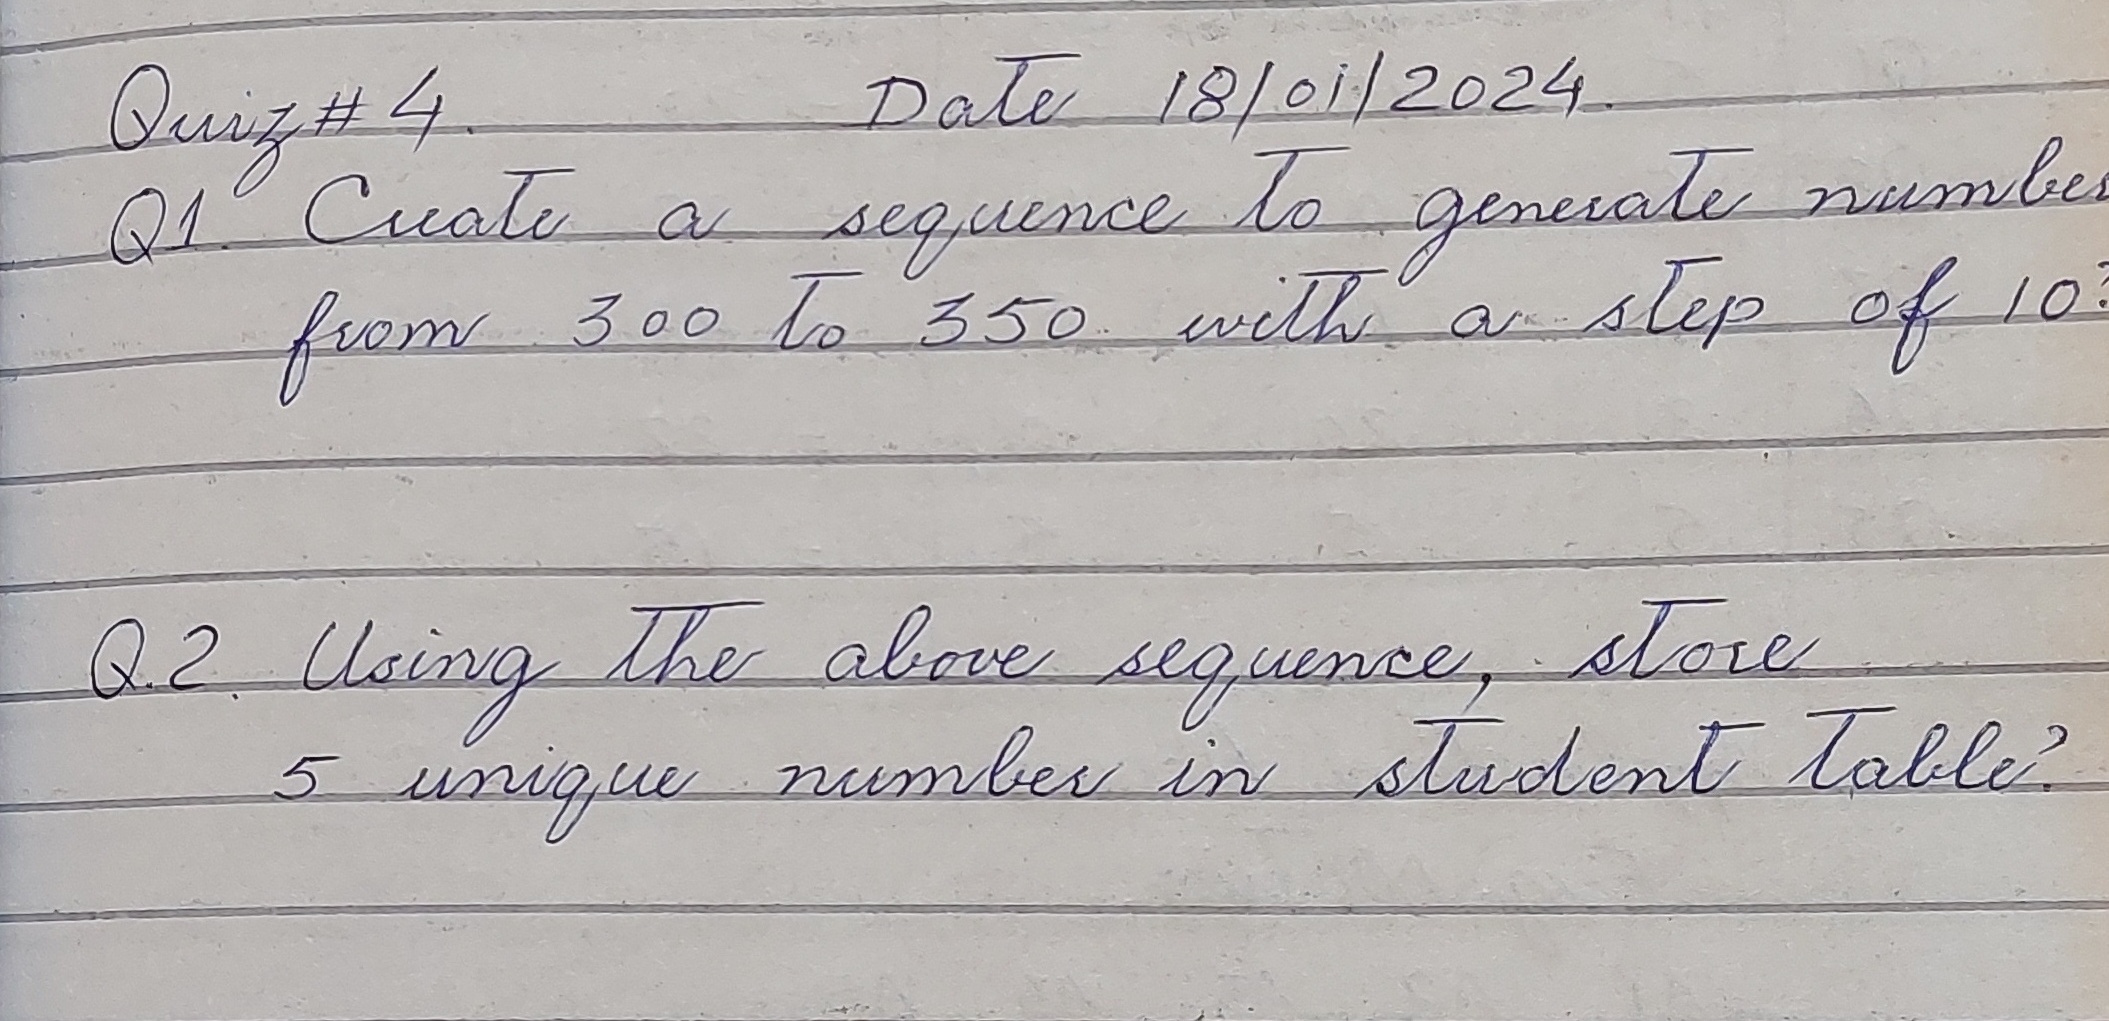 Quiz # 4 Date 18/01/2024
Q1 Create a sequence to generate number
from 300 to 350 with a step of 10?
Q.2 Using the above sequence, store
5 unique number in student table?